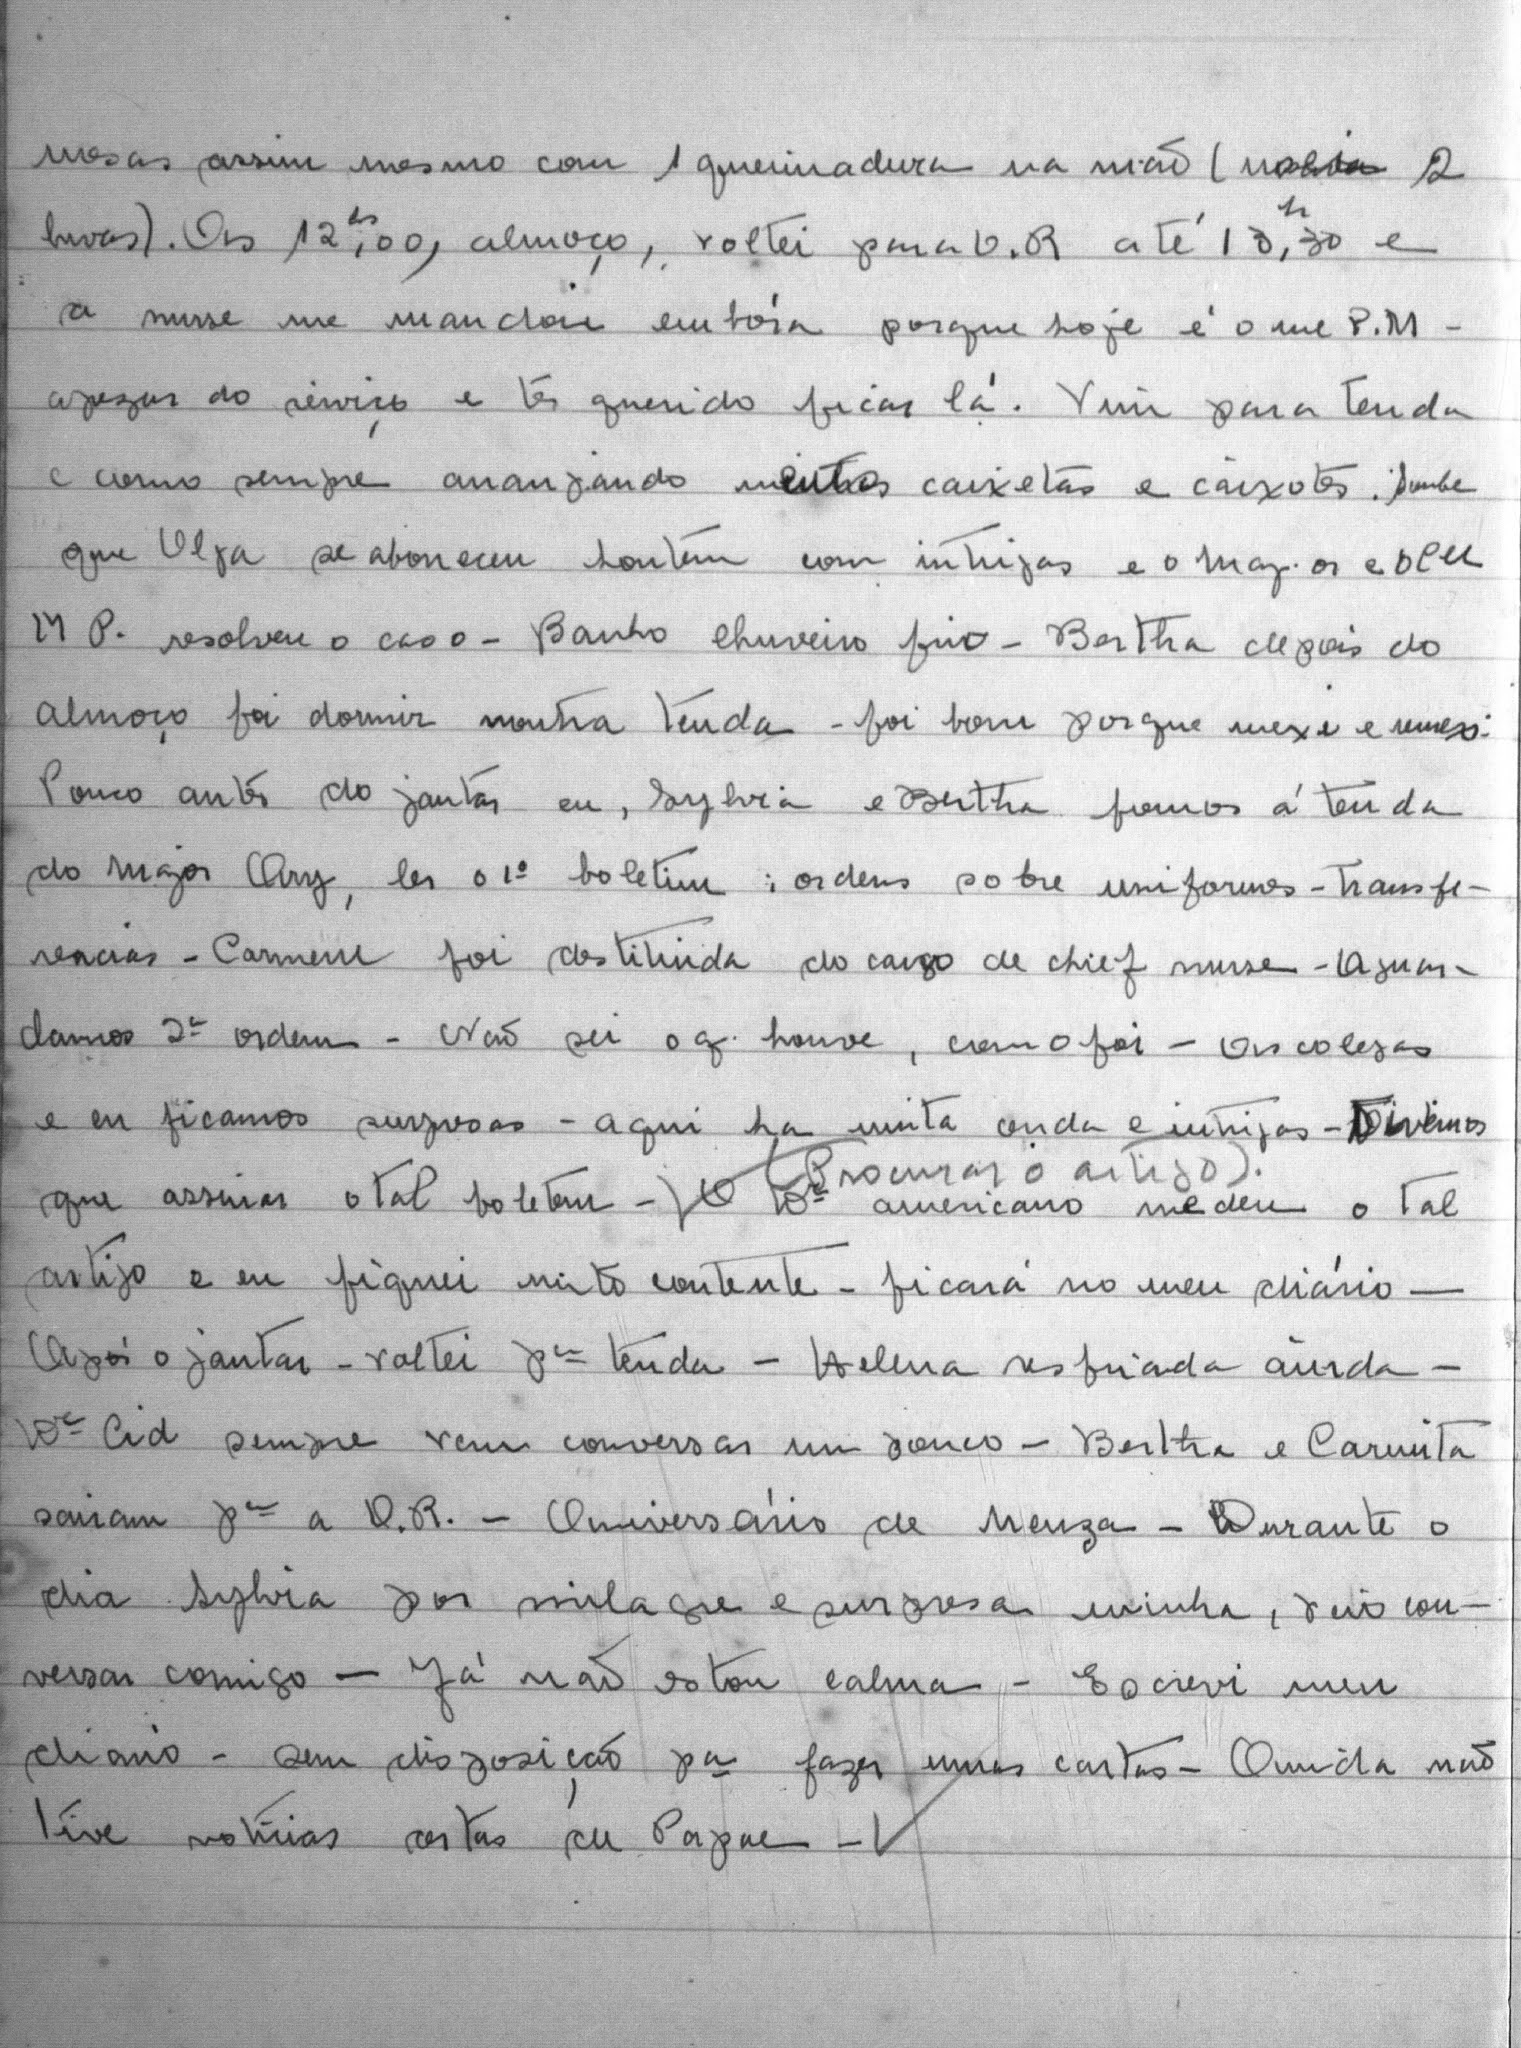 mesas assim mesmo com 1 queimadura na mão ( 2
luvas). As 12hs,00, almoço, voltei para O.R até 13h,30 e
a nurse me mandou embóra porque hoje é o me P.M -
apezar do serviço e ter querido ficar lá. Vim para tenda
e como sempre arranjando caixetas e caixotes. Soube
que Olga se aborreceu hontem com intrigas e o Maj. or e
M P. resolveu o caso - Banho chuveiro frio - Bertha depois do
almoço foi dormir noutra tenda - foi bom porque mexi e remexi.
Pouco antes do jantar eu, Sylvia e Bertha fomos á tenda
do Major Ary, ler o 1º boletim : ordens sobre uniformes - transfe-
rencias - Carmem foi destituida do cargo de chief nurse - Aguar-
damos 2ª ordem - Não sei o q. houve, como foi - As colegas
e eu ficamos surpresas - aqui ha muita onda e intrigas - Tivemos
(Procurar o artigo).
que assinar o tal boletim - O Dr americano me deu o tal
artigo e eu fiquei muito contente - ficará no meu diário -
Após o jantar - voltei pa tenda - Helena resfriada ainda -
Dr Cid sempre vem conversar um pouco - Bertha e Carmita
sairam pa a O.R. - Aniversário de Neuza - Durante o
dia Sylvia por milagre e surpresa minha, veio con-
versar comigo - Já não estou calma - Escrevi meu
diario - sem disposição pa fazer umas cartas - Ainda não
tive notícias certas de Papae -